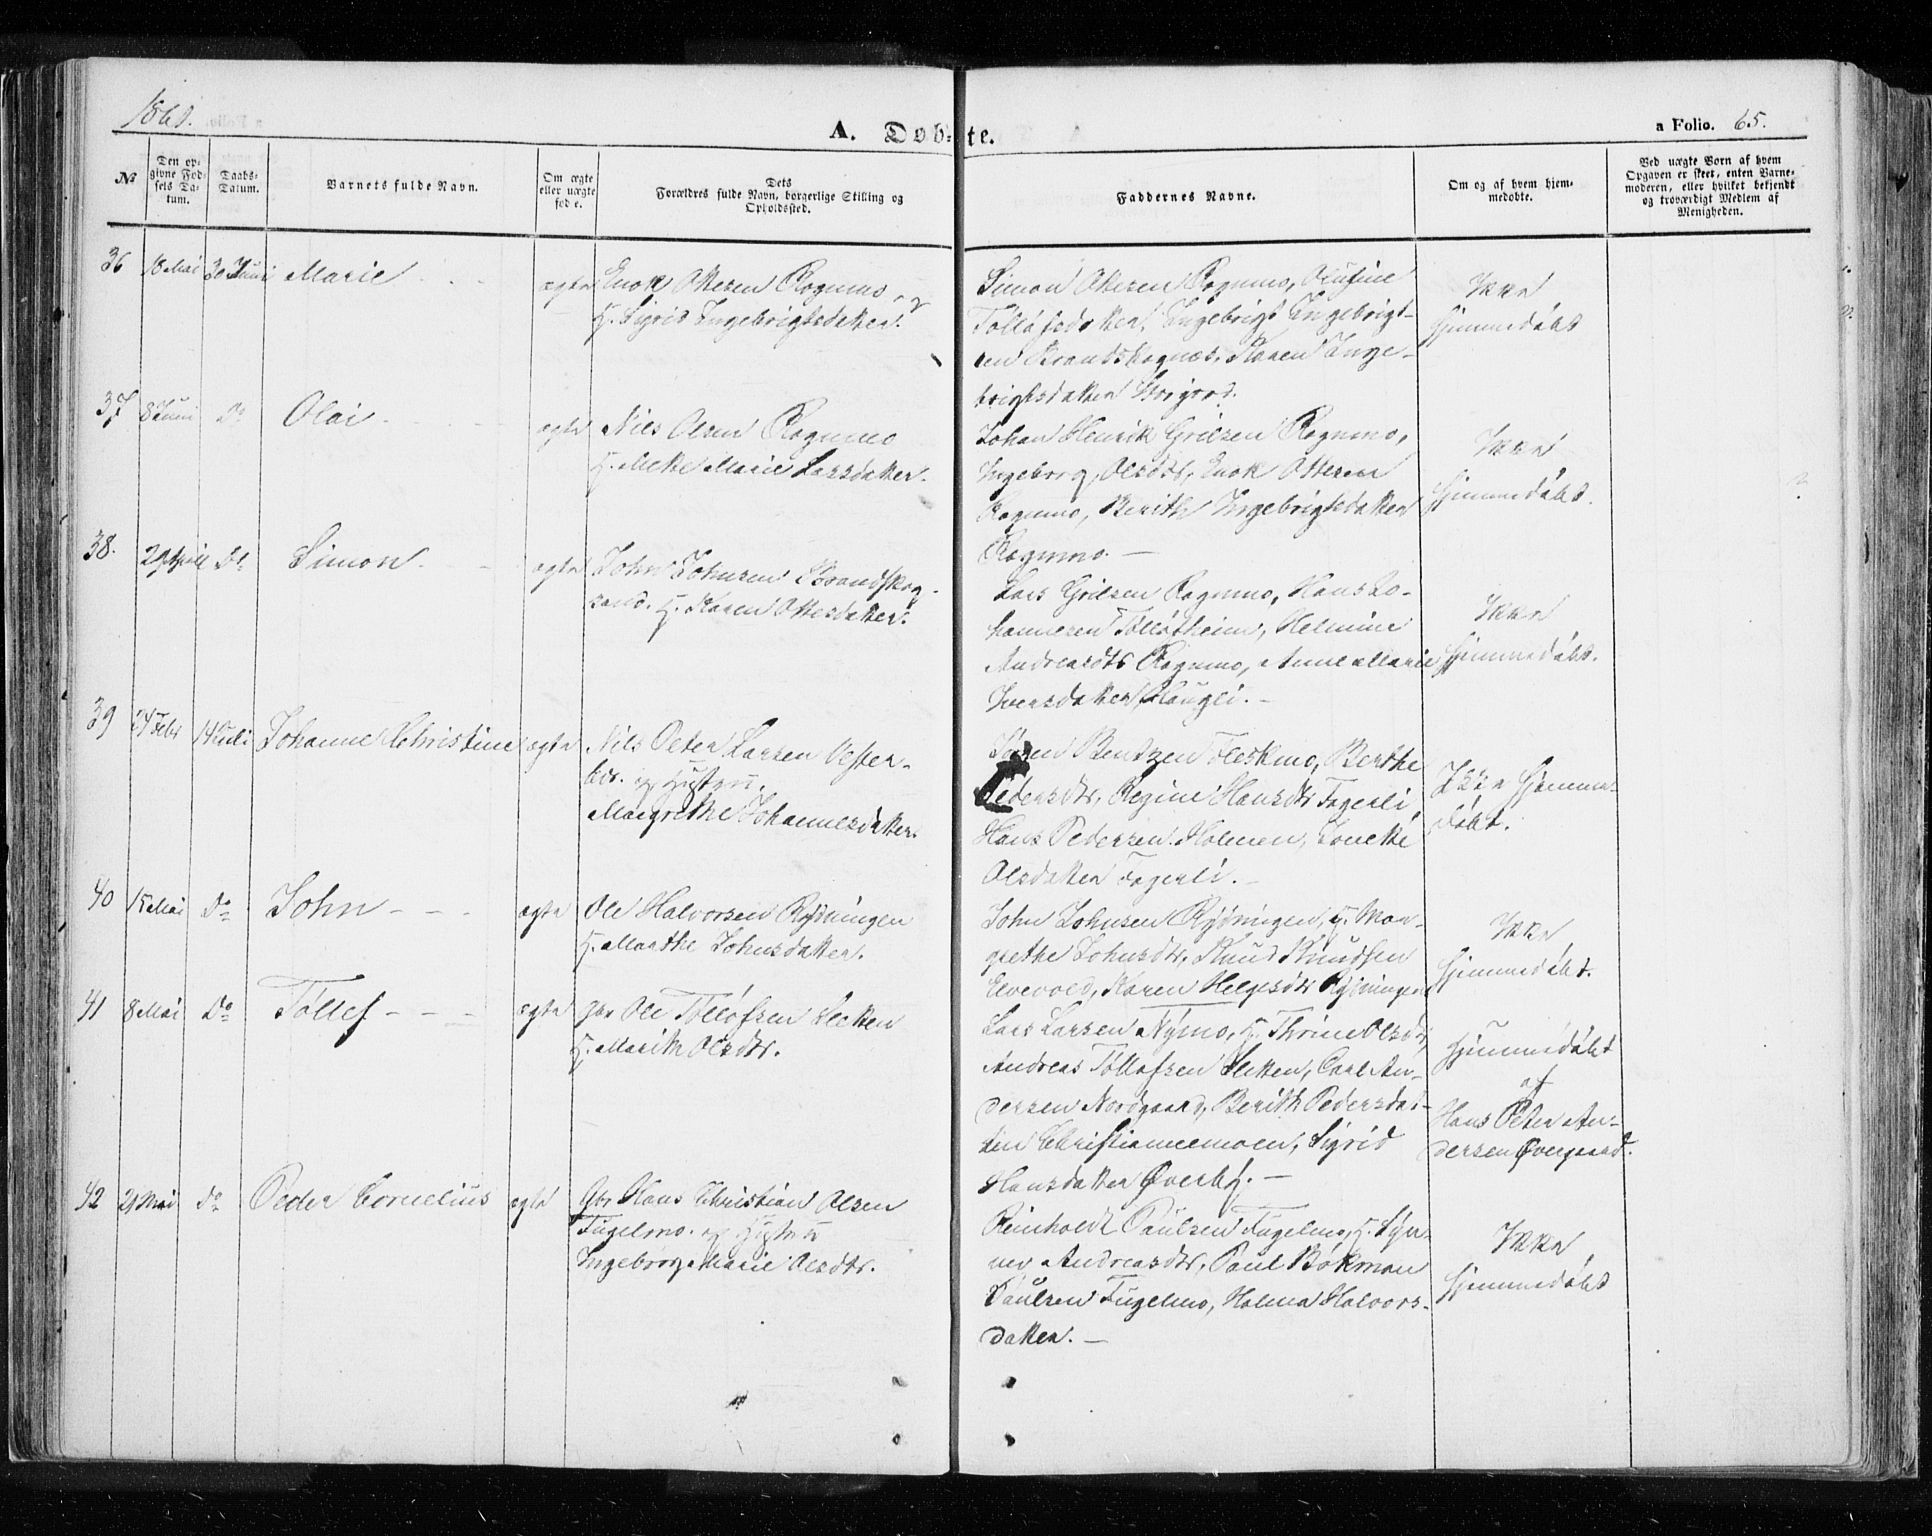 1861.
A. Døbte.
a Folio. 65.
No
Den opgivne Fødsels Datum.
Daabs-Datum.
Barnets fulde Navn.
Om ægte eller uægte fode.
Dets Forældres fulde Navn, borgerlige Stilling og Opholdssted.
Faddernes Navne.
Om og af hvem hjemmedøbte.
Ved uægte Born af hvem Opgaven er skeet, enten Barnemoderen, eller hvilket bekjendt og troværdigt Medlem af Menigheden.
36 18 Mai 30 Juni Marie ægte
Enok Ottesen Rognmo, og
H. Sigrid Ingebrigtsdatter.
Simon Ottesen Rognmo, Olufine
Tollefsdatter, Ingebrigt Ingebrigt-
sen Brandskognæs, Karen Inge-
brigtsdatter
Ikke
hjemmedøbt
37 8 Juni Do Olai ægte
Nils Olsen Rognmo
H. Mette Marie Larsdatter.
Johan Henrik Grilsen Rognmo,
Ingeborg Olsdtr, Enok Ottesen
Rognmo, Berith Ingebrigtsdatter
Rognmo. —
Ikke
hjemmedøbt.
38. 29 April Do Simon ægte
John Johnsen Brandskog-
sand. H. Karen Ottesdatter.
Lars Grilsen Rognmo, Hans Jo-
hannesen Tolløfheim, Helmine
Andreasdtr Rognmo, Anne Marie
Iversdatter Haugli. —
Ikke
hjemmedøbt.
39 24 Febr 14 Juli Johanne Christine ægte
Nils Peter Larsen Vester-
lid. og Hustru
Margrethe Johannesdatter.
Søren Bentzen Fleskmo, Berthe
Pedersdtr, Regine Hansdtr Fagerli,
Hans Pedersen Holmen,
Olsdatter Fagerli. —
Ikke hjemme-
døbt.
40 15 Mai Do John ægte
Ole Halvorsen Rydningen
H. Marthe Johnsdatter.
John Johnsen Rydningen, H. Mar-
grethe Johnsdtr, Knud Knudsen
Elvevold, Karen Helgesdtr Rydningen
Ikke
hjemmedøbt.
41 8 Mai Do Tøllef ægte
Gbr Ole Tølløfsen Sletten
H. Marith Olsdtr.
Lars Larsen Nymo, H. Thrine Olsdtr,
Andreas Tøllefsen Sletten, Carl An-
dersen Nordgaard, Berith Pedersdat-
ter Christiannemoen, Sigrid
Hansdatter Øverby. —
Hjemmedøbt
af
Hans Peter An-
dersen Øvergaard.
42 21 Mai Do Peder Cornelius ægte
Gbr Hans Christian Olsen
Fugelmo. og Hustru
Ingeborg Marie Olsdtr.
Reinholdt Paulsen Fugelmo, H. Syn-
nev Andreasdtr, Paul Bøkman
Paulsen Fugelmo, Halma Halvors-
datter. —
Ikke
hjemmedøbt